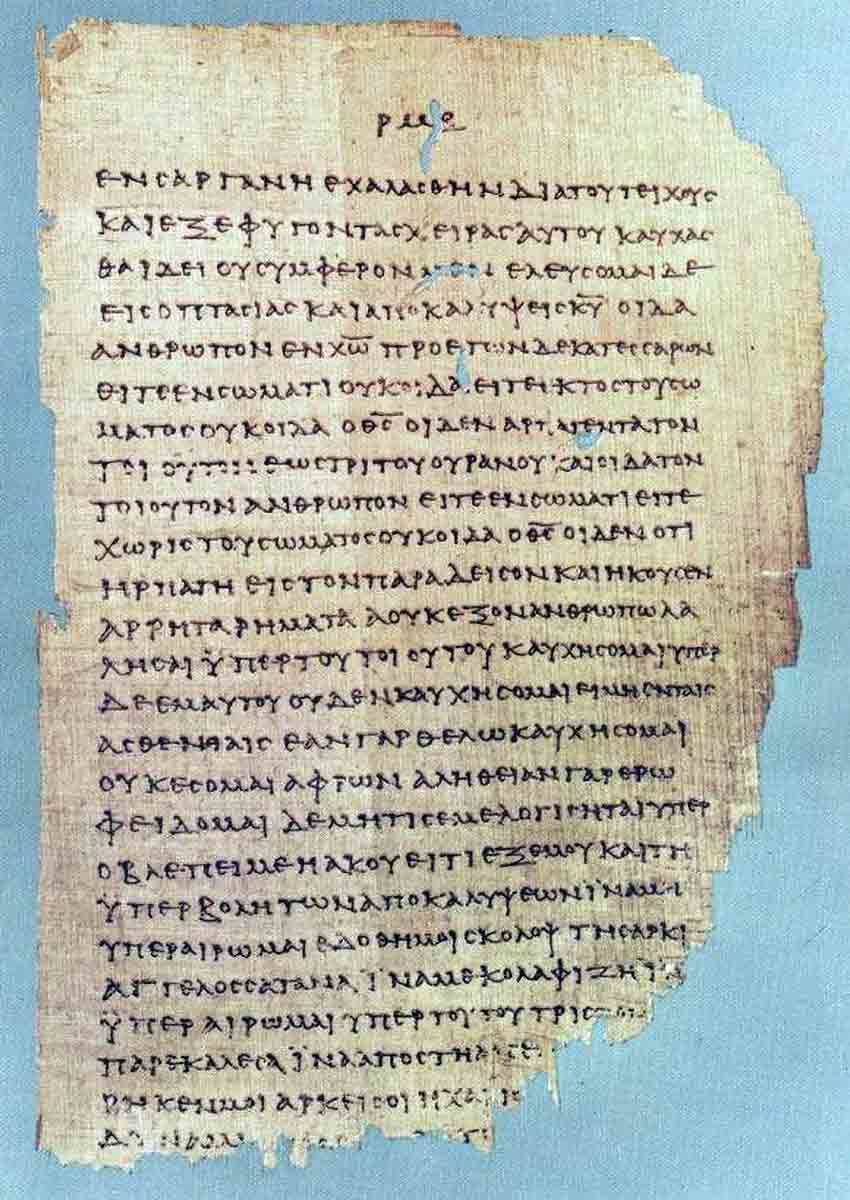 ΕΝϹΑΡΓΑΝΗ ΕΧΑΛΑϹΘΗΝ ΔΙΑΤΟΥΤΕΙΧΟΥϹ
ΚΑΙΕΞΕΦΥΓΟΝΤΑϹΧΕΙΡΑϹΑΥΤΟΥ ΚΑΥΧΑϹ
ΘΑΙΔΕΙ ΟΥϹΥΜΦΕΡΟΝ ΕΛΕΥϹΟΜΑΙΔΕ
ΕΙϹΟΠΤΑϹΙΑϹ ΚΑΙΑΠΟΚΑΛΥΨΕΙϹΚ̅Υ̅ ΟΙΔΑ
ΑΝΘΡΩΠΟΝ ΕΝΧ̅Ω̅ ΠΡΟΕΤΩΝΔΕΚΑΤΕϹϹΑΡΩΝ
ΕΙΤΕΕΝϹΩΜΑΤΙΟΥΚΟΙΔΑ ΕΙΤΕΕΚΤΟϹΤΟΥϹΩ
ΜΑΤΟϹΟΥΚΟΙΔΑ ΟΘ̅Ϲ̅ ΟΙΔΕΝ ΑΡΠΑΓΕΝΤΑΤΟΝ
ΤΟΙΟΥΤΟΝ ΕΩϹΤΡΙΤΟΥΟΥΡΑΝΟΥ ΚΑΙΟΙΔΑΤΟΝ
ΤΟΙΟΥΤΟΝ ΑΝΘΡΩΠΟΝ ΕΙΤΕΕΝϹΩΜΑΤΙΕΙΤΕ
ΧΩΡΙϹΤΟΥϹΩΜΑΤΟϹΟΥΚΟΙΔΑ ΟΘ̅Ϲ̅ ΟΙΔΕΝ ΟΤΙ
ΗΡΠΑΓΗ ΕΙϹΤΟΝΠΑΡΑΔΕΙϹΟΝ ΚΑΙΗΚΟΥϹΕΝ
ΑΡΡΗΤΑΡΗΜΑΤΑ ΑΟΥΚΕΞΟΝΑΝΘΡΩΠΩΛΑ
ΛΗϹΑΙ ΫΠΕΡΤΟΥΤΟΙΟΥΤΟΥ ΚΑΥΧΗϹΟΜΑΙΫΠΕΡ
ΔΕΕΜΑΥΤΟΥ ΟΥΔΕΝΚΑΥΧΗϹΟΜΑΙΕΙΜΗΕΝΤΑΙϹ
ΑϹΘΕΝΕΙΑΙϹ ΕΑΝΓΑΡΘΕΛΩΚΑΥΧΗϹΟΜΑΙ
ΟΥΚΕϹΟΜΑΙ ΑΦΡΩΝ ΑΛΗΘΕΙΑΝΓΑΡΕΡΩ
ΦΕΙΔΟΜΑΙ ΔΕΜΗΤΙϹΕΜΕΛΟΓΙϹΗΤΑΙΫΠΕΡ
ΟΒΛΕΠΕΙΜΕΗΑΚΟΥΕΙΤΙΕΞΕΜΟΥΚΑΙΤΗ
ΫΠΕΡΒΟΛΗΤΩΝΑΠΟΚΑΛΥΨΕΩΝΪΝΑΜΗ
ΥΠΕΡΑΙΡΩΜΑΙ ΕΔΟΘΗΜΟΙϹΚΟΛΟΨ ΤΗϹΑΡΚΙ
ΑΓΓΕΛΟϹϹΑΤΑΝΑ ΪΝΑΜΕΚΟΛΑΦΙΖΗΪΝΑ
ΫΠΕΡΑΙΡΩΜΑΙ ΥΠΕΡΤΟΥΤΟΥΤΡΙϹ
ΠΑΡΕΚΑΛΕϹΑΪΝΑΑΠΟϹΤΗΑ
ΡΗΚΕΝΜΟΙ ΑΡΚΕΙϹΟΙ ΗΧΑΡΙϹ
ΔΥΝΑΜΙ